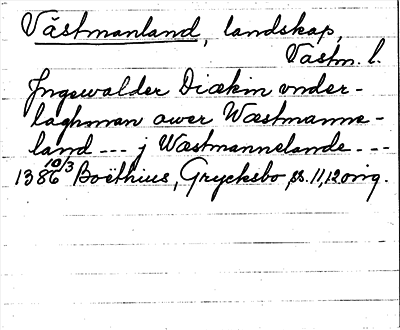 Västmanland, landskap,
Västm. l.
Jngewalder Diækin vnder-
laghman awer Wæstmanne-
land --- j Wæstmannelande ---
1386 10/3 Boëthius, Grycksbo, ss. 11, 12 orig.